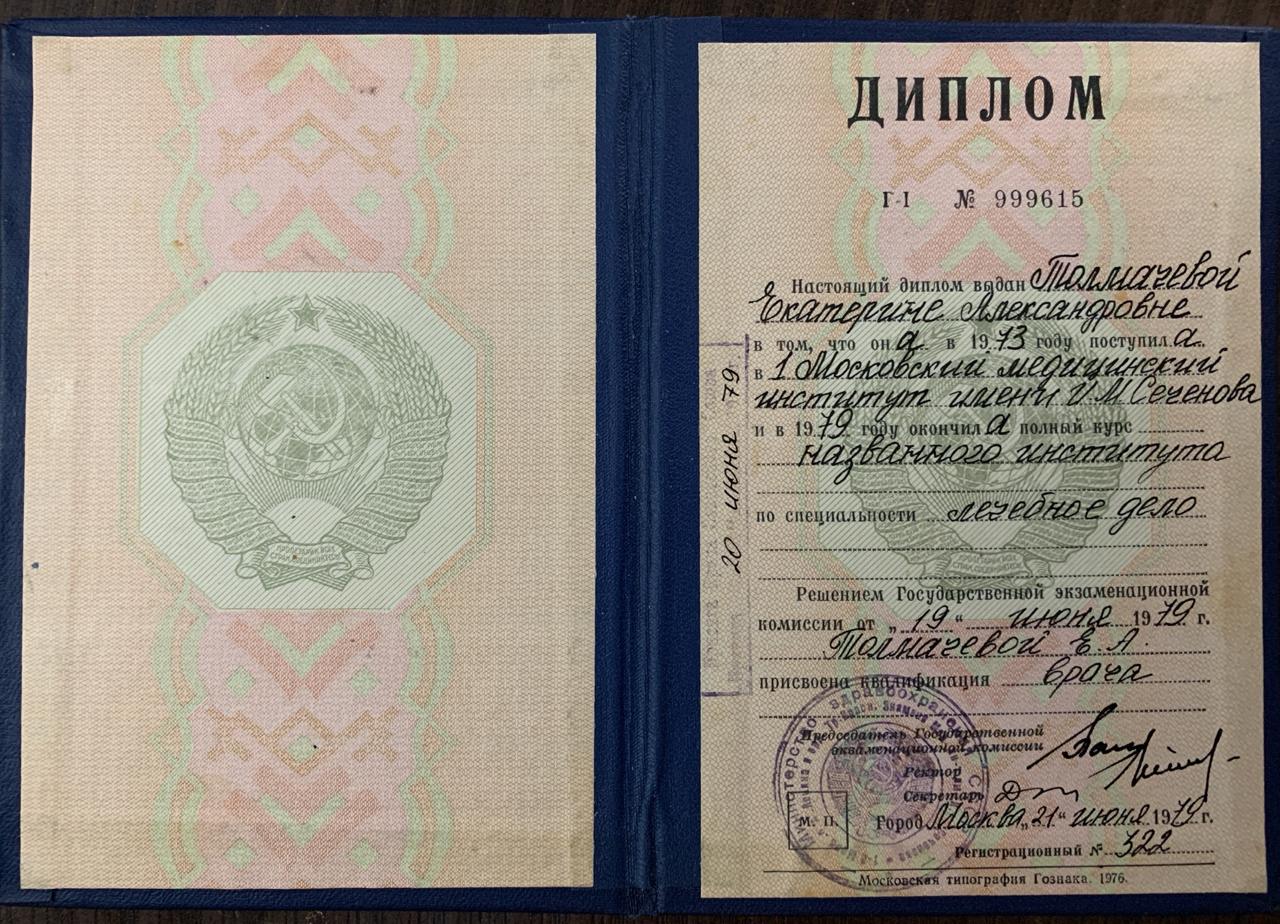 ПРОЛЕТАРИИ ВСЕХ
СТРАН, СОЕДИНЯЙТЕСЬ!
ДИПЛОМ
Г-I № 999615
Настоящий диплом выдан Толмачевой
Екатерине Александровне
в том, что он а в 1973 году поступил а
в 1 Московский медицинский
институт имени И М Сеченова
и в 1979 году окончил а полный курс
названного института
по специальности лечебное дело
Решением Государственной экзаменационной
комиссии от „19“ июня 1979 г.
Толмачевой Е. А.
присвоена квалификация врача
Председатель Государственной
экзаменационной комиссии
Ректор
Секретарь
М. П.
Город Москва „21“ июня 1979 г.
Регистрационный № 322
Московская типография Гознака. 1976.
20 июня 79